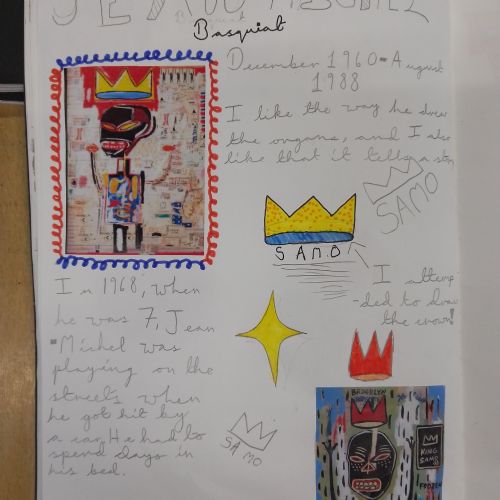 JEAN MICHEL
Basquiat
December 1960-August
1988
I like the way he drew
the organs, and I also
like that it tells a story
SAMO
SAMO
I attemp
-ded to draw
the crown!
In 1968, when
he was 7, Jean
-Michel was
playing on the
streets when
he got hit by
a car. He had to
spend days in
his bed.
SAMO
BROOKLYN
KING
SAMO
FROZEN